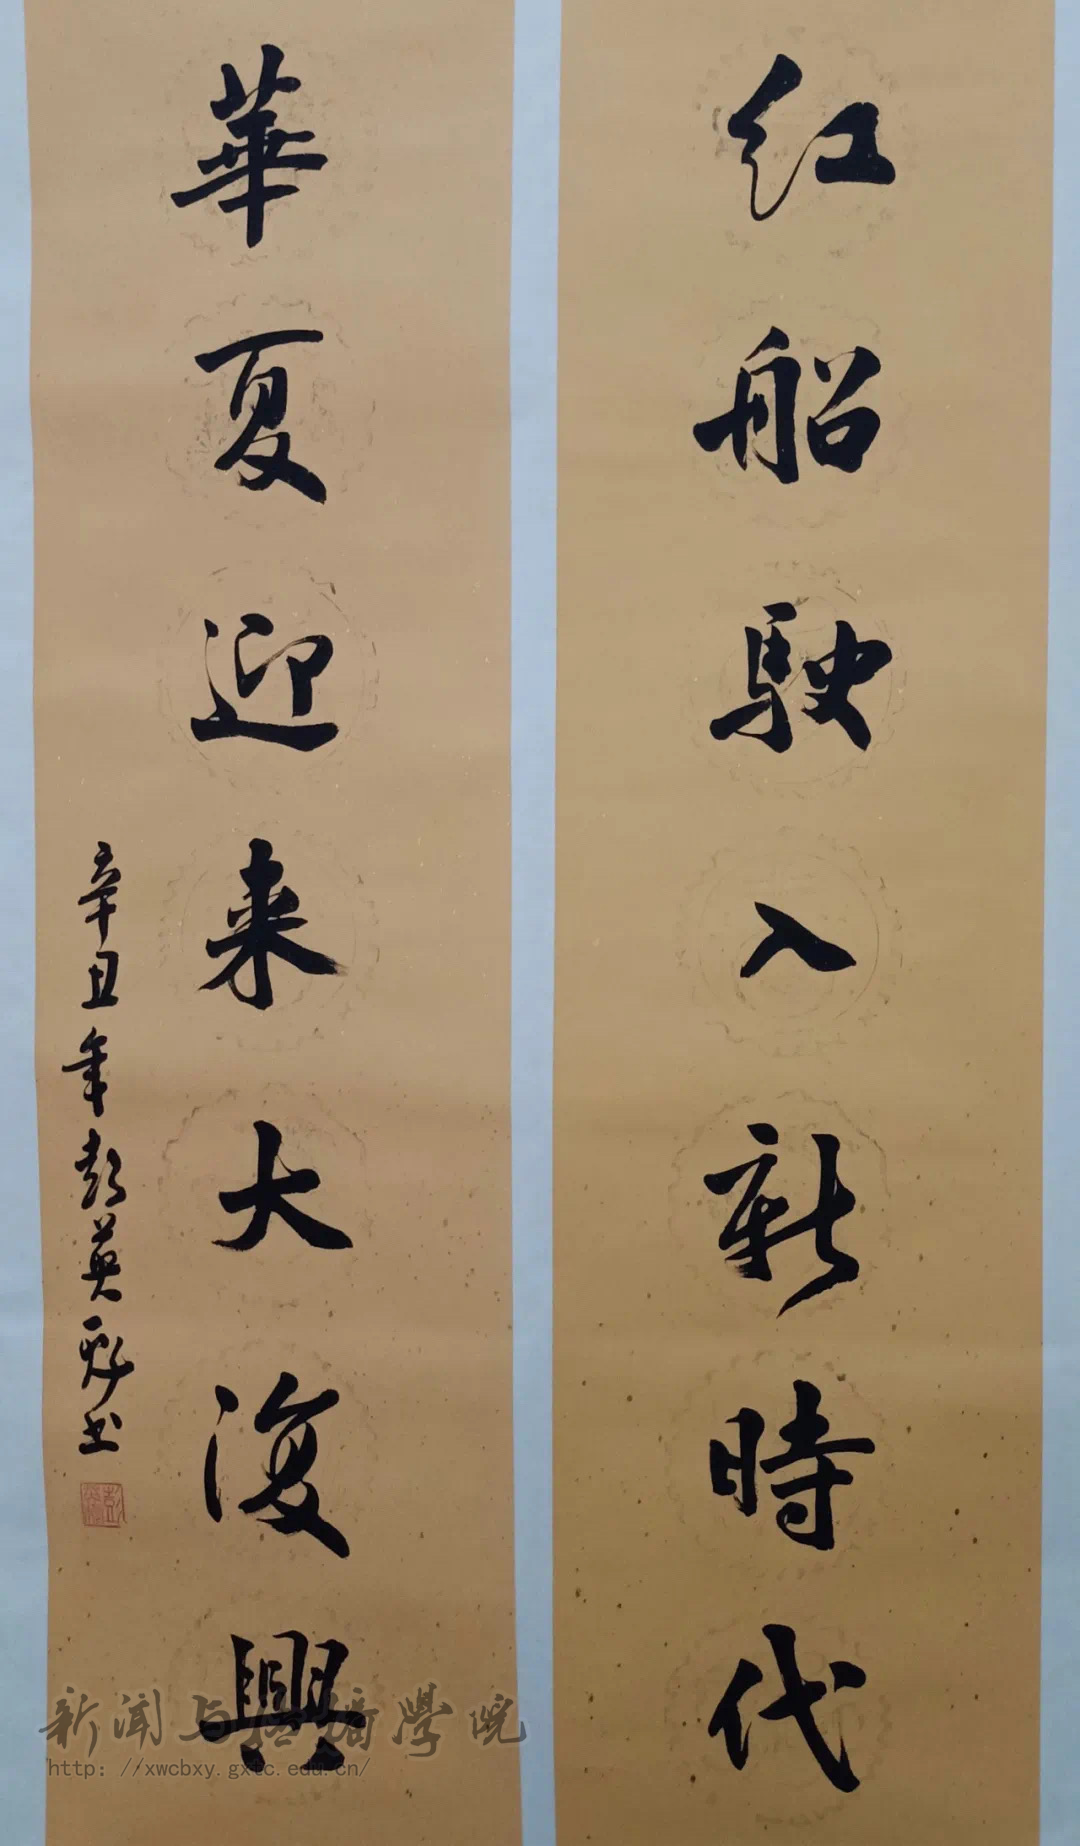 红船駛入新時代
華夏迎来大復興
辛丑年彭英
书
新闻与传播學院
http://xwcbxy.gxtc.edu.cn/